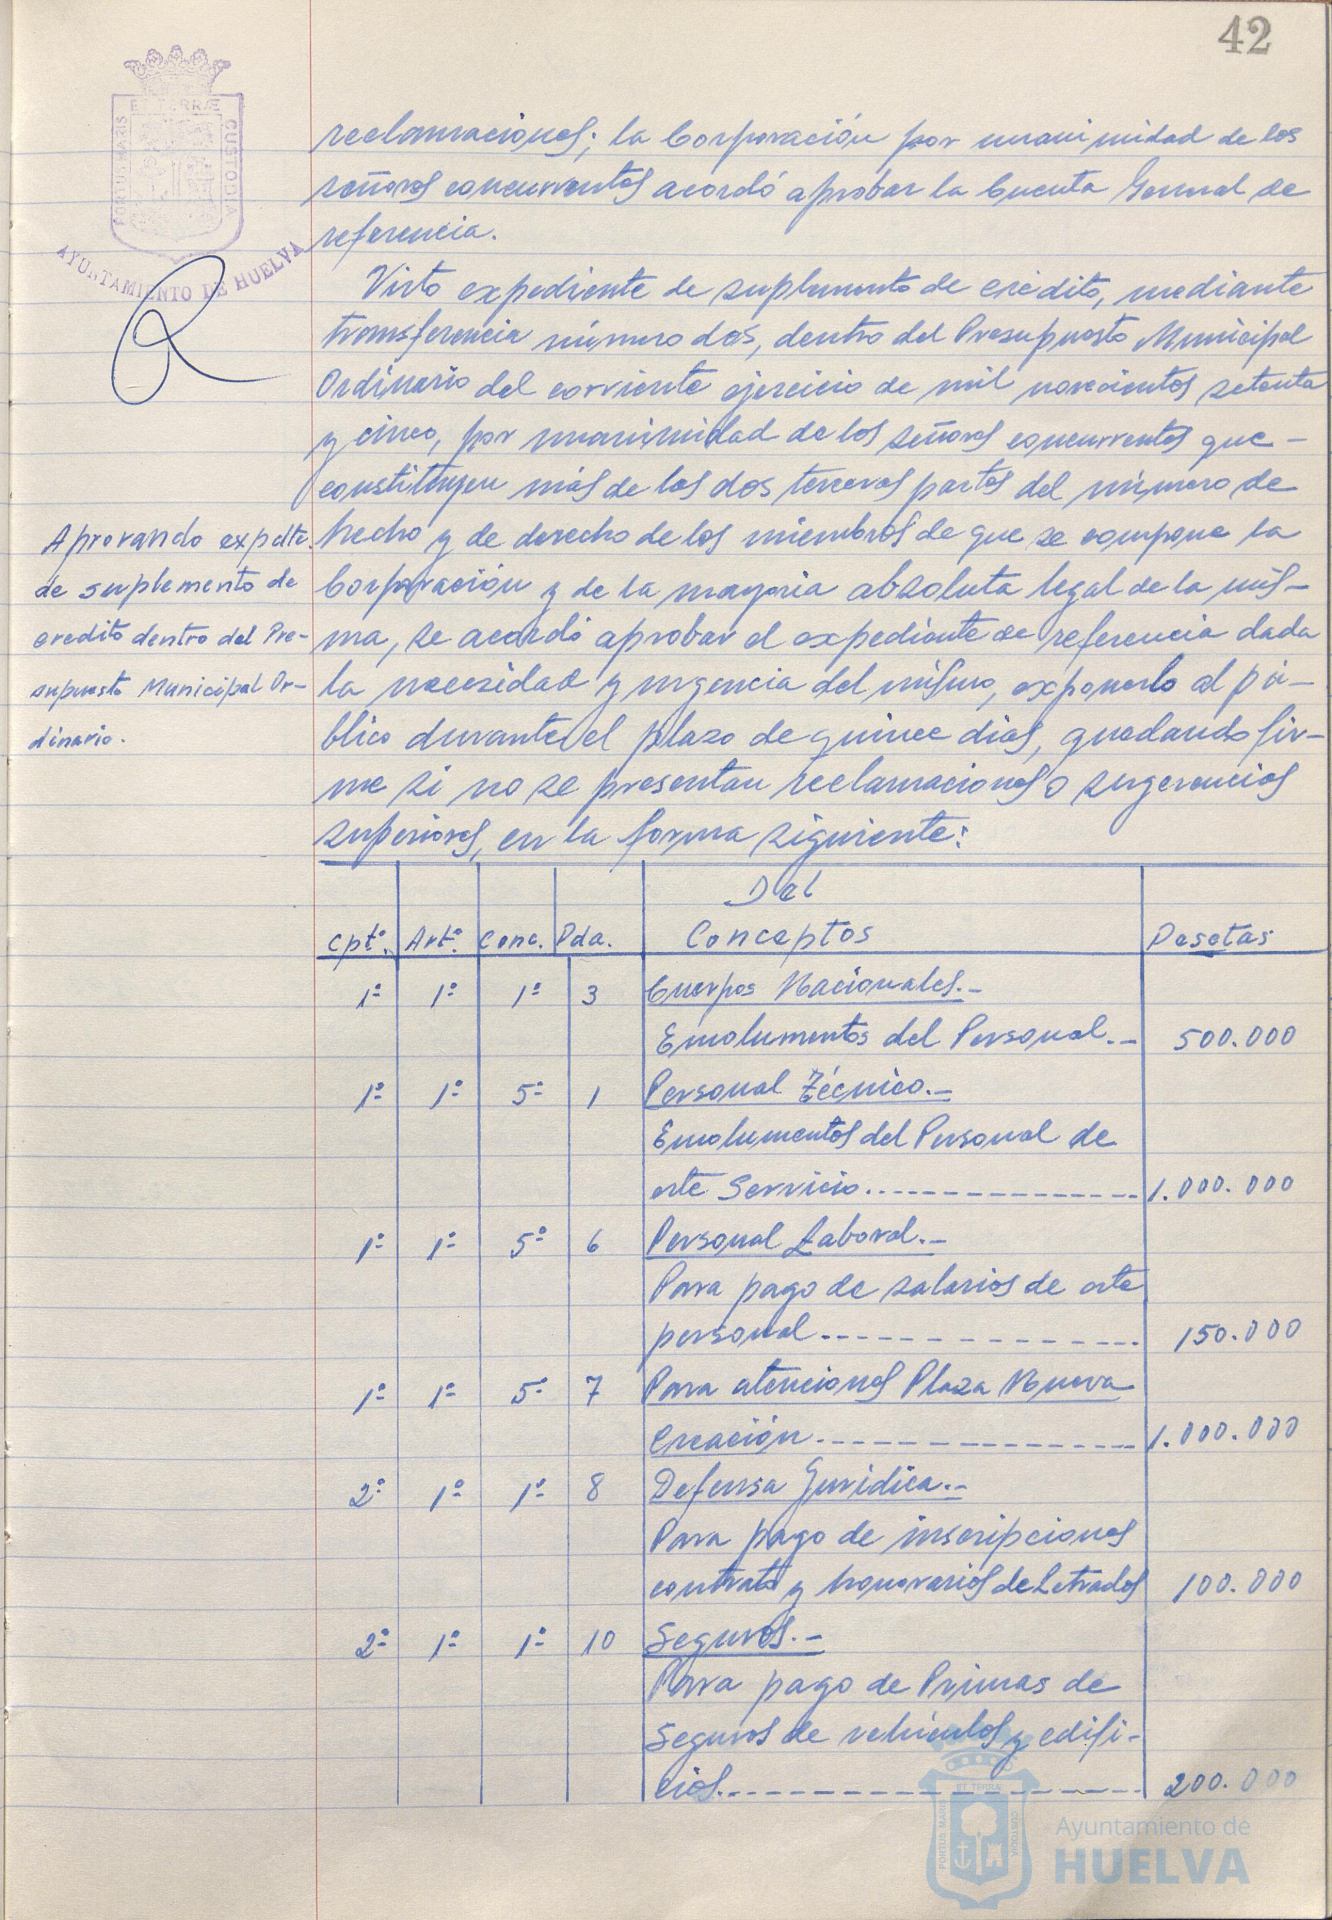 42
ET TERRÆ
PORTUS MARIS
CUSTODIA
AYUNTAMIENTO DE HUELVA
reclamaciones; la Corporación por unanimidad de los
señores concurrentes acordó aprobar la Cuenta General de
referencia.
Visto expediente de suplemento de crédito, mediante
transferencia número dos, dentro del Presupuesto Municipal
Ordinario del corriente ejercicio de mil novecientos setenta
y cinco, por unanimidad de los señores concurrentes que-
constituyen más de las dos terceras partes del número de
hecho y de derecho de los miembros de que se compone la
Corporación y de la mayoria absoluta legal de la mis-
ma, se acordó aprobar el expediente de referencia dada
la necesidad y urgencia del mismo, exponerlo al pú-
blico durante el plazo de quince dias, quedando fir-
me si no se presentan reclamaciones o sugerencias
superiores, en la forma siguiente:
Aprovando expdte.
de suplemento de
credito dentro del Pre-
supuesto Municipal Or-
dinario.
Del
Cptº. Artº. Conc. Pda. Conceptos Pesetas
1º 1º 1º 3 Cuerpos Nacionales.-
Emolumentos del Personal.- 500.000
1º 1º 5º 1 Personal Técnico.-
Emolumentos del Personal de
este Servicio.------------- 1.000.000
1º 1º 5º 6 Personal Laboral.-
Para pago de salarios de este
personal.------------- 150.000
1º 1º 5º 7 Para atenciones Plaza Nueva
Creación.------------- 1.000.000
2º 1º 1º 8 Defensa Juridica.-
Para pago de inscripciones
contrato y honorarios de Letrados 100.000
2º 1º 1º 10 Seguros.-
Para pago de Primas de
Seguros de vehiculos y edifi-
cios.------------- 200.000
ET TERRÆ
PORTUS MARIS
CUSTODIA
Ayuntamiento de
HUELVA